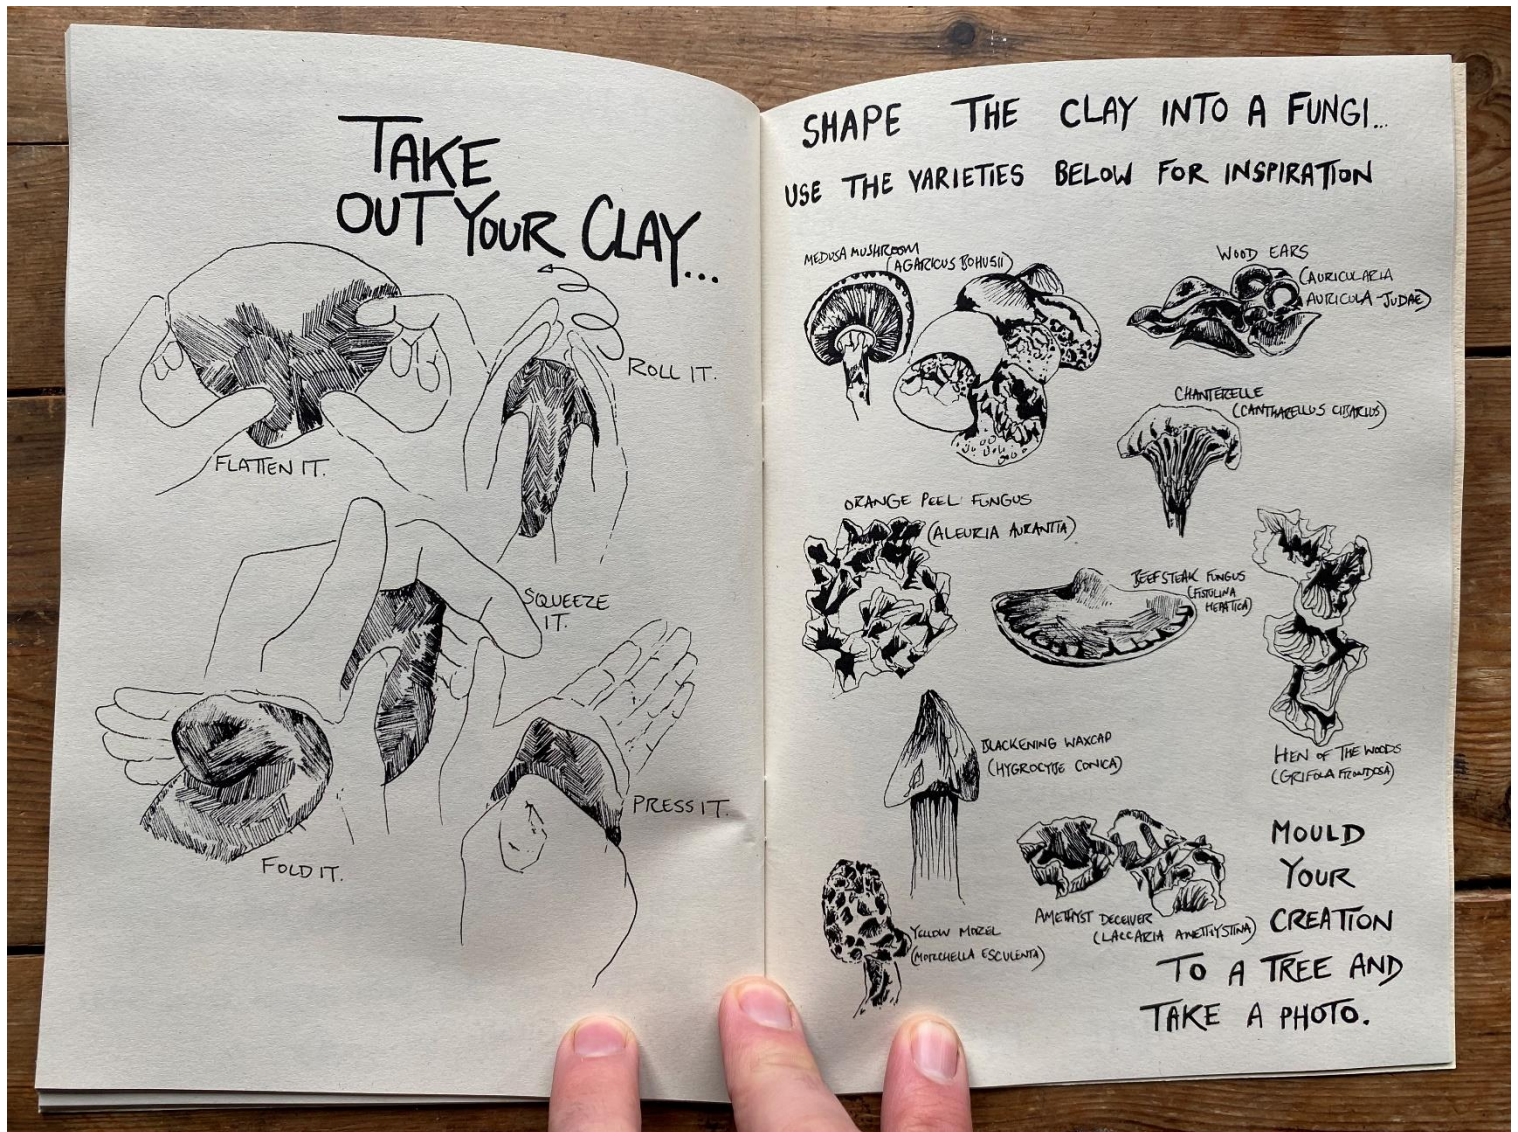 TAKE
OUT YOUR CLAY...
ROLL IT.
FLATTEN IT.
SQUEEZE
IT.
PRESS IT.
FOLD IT.
SHAPE THE CLAY INTO A FUNGI...
USE THE VARIETIES BELOW FOR INSPIRATION
MEDUSA MUSHROOM
(AGARICUS BOHUSII)
WOOD EARS
(AURICULARIA
AURICULA-JUDAE)
CHANTERELLE
(CANTHARELLUS CIBARIUS)
ORANGE PEEL FUNGUS
(ALEURIA AURANTIA)
BEEFSTEAK FUNGUS
(FISTULINA
HEPATICA)
BLACKENING WAXCAP
(HYGROCYBE CONICA)
HEN OF THE WOODS
(GRIFOLA FRONDOSA)
YELLOW MOREL
(MORCHELLA ESCULENTA)
AMETHYST DECEIVER
(LACCARIA AMETHYSTINA)
MOULD
YOUR
CREATION
TO A TREE AND
TAKE A PHOTO.